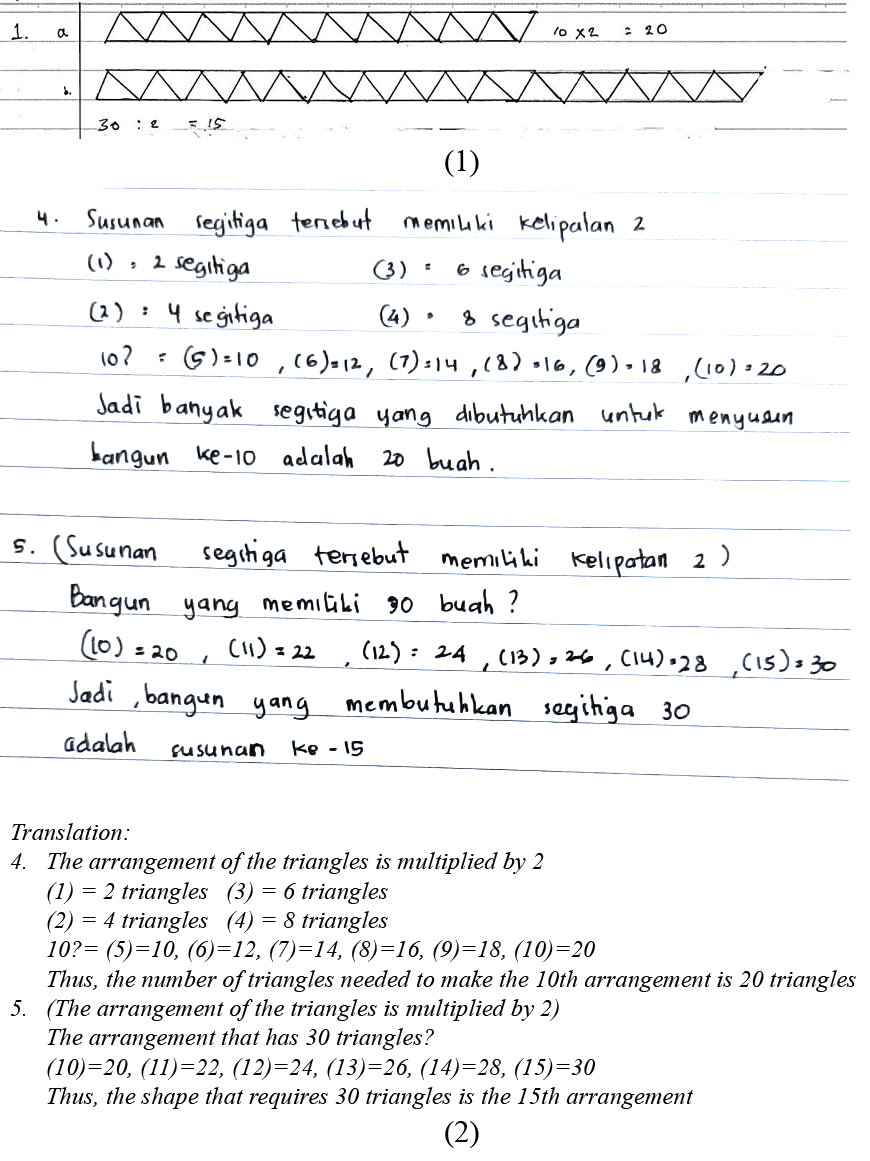 1. a 10 x 2 = 20
b.
30 : 2 = 15
(1)
4. Susunan segitiga tersebut memiliki kelipatan 2
(1) = 2 segitiga (3) = 6 segitiga
(2) = 4 segitiga (4) = 8 segitiga
10? = (5)=10, (6)=12, (7)=14, (8)=16, (9)=18, (10)=20
Jadi banyak segitiga yang dibutuhkan untuk menyusun
bangun ke-10 adalah 20 buah.
5. (Susunan segitiga tersebut memiliki kelipatan 2)
Bangun yang memiliki 30 buah?
(10) = 20, (11) = 22, (12) = 24, (13) = 26, (14) = 28, (15) = 30
Jadi, bangun yang membutuhkan segitiga 30
adalah susunan ke-15
Translation:
4. The arrangement of the triangles is multiplied by 2
(1) = 2 triangles (3) = 6 triangles
(2) = 4 triangles (4) = 8 triangles
10?= (5)=10, (6)=12, (7)=14, (8)=16, (9)=18, (10)=20
Thus, the number of triangles needed to make the 10th arrangement is 20 triangles
5. (The arrangement of the triangles is multiplied by 2)
The arrangement that has 30 triangles?
(10)=20, (11)=22, (12)=24, (13)=26, (14)=28, (15)=30
Thus, the shape that requires 30 triangles is the 15th arrangement
(2)